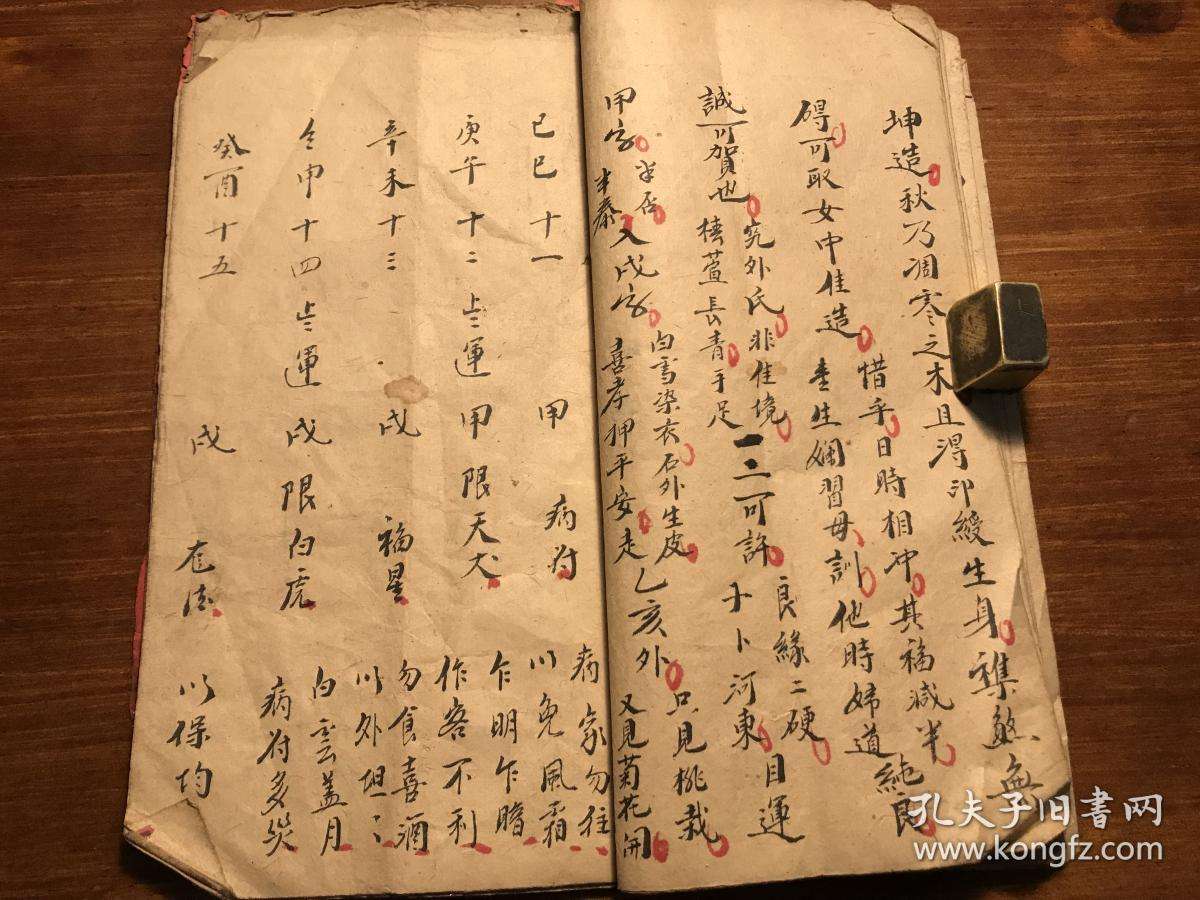 坤造秋乃凋零之木且淂印綬生身襍煞無
碍可取女中佳造惜乎日時相冲其福减半
生嫻習母訓他時婦道純良
誠可賀也究外氏非佳境良緣二硬
椿萱長青手足一二可許卜河東目運
甲字半否半泰入戌字白雪染衣石外生皮
喜孝押平安走乙亥外只見桃栽又見菊花開
己巳十一 甲 病符 病家勿往以免風霜
庚午十二 運甲限天犬 乍明乍暗作客不利
辛未十三 戌 福星 勿食喜酒以外坦々
壬申十四 運戌限白虎 白雲盖月病符多災
癸酉十五 戌 以保均
孔夫子旧书网
www.kongfz.com